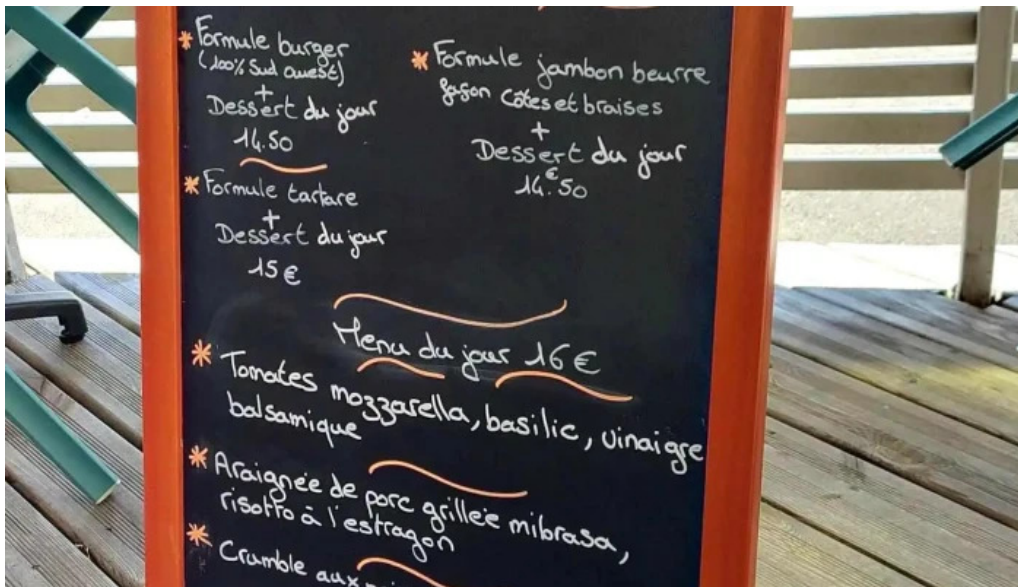 * Formule burger
(100% Sud ouest)
+
Dessert du jour
14.50
* Formule tartare
+
Dessert du jour
15€
* Formule jambon beurre
façon Côtes et braises
+
Dessert du jour
14€.50
Menu du jour 16€
* Tomates mozzarella, basilic, vinaigre
balsamique
* Araignée de porc grillée mibrasa,
risotto à l'estragon
* Crumble aux